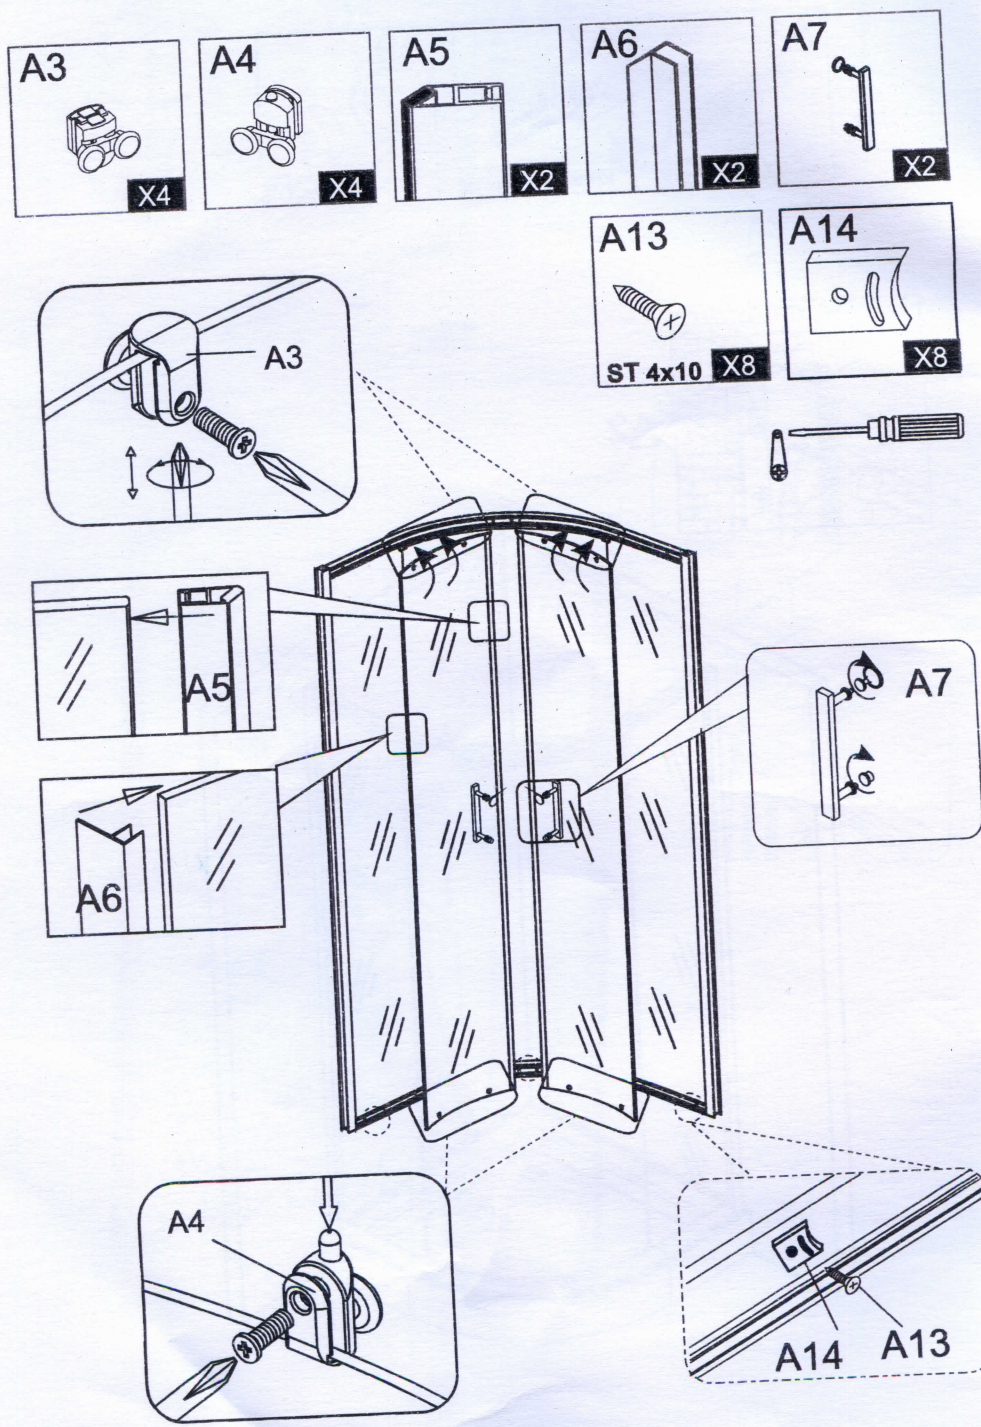 A3
X4
A4
X4
A5
X2
A6
X2
A7
X2
A13
ST 4x10
X8
A14
X8
A3
A5
A7
A6
A4
A14
A13